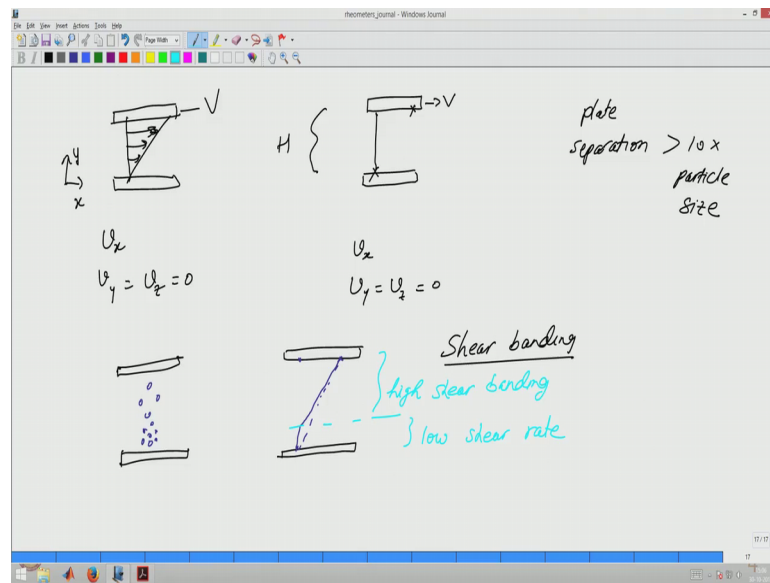 rheometers_journal - Windows Journal
File Edit View Insert Actions Tools Help
Page Width
B I
V
H
→V
plate
separation > 10x
particle
size
y
x
υx
υy = υz = 0
υx
υy = υz = 0
Shear banding
high shear banding
low shear rate
17/17
17